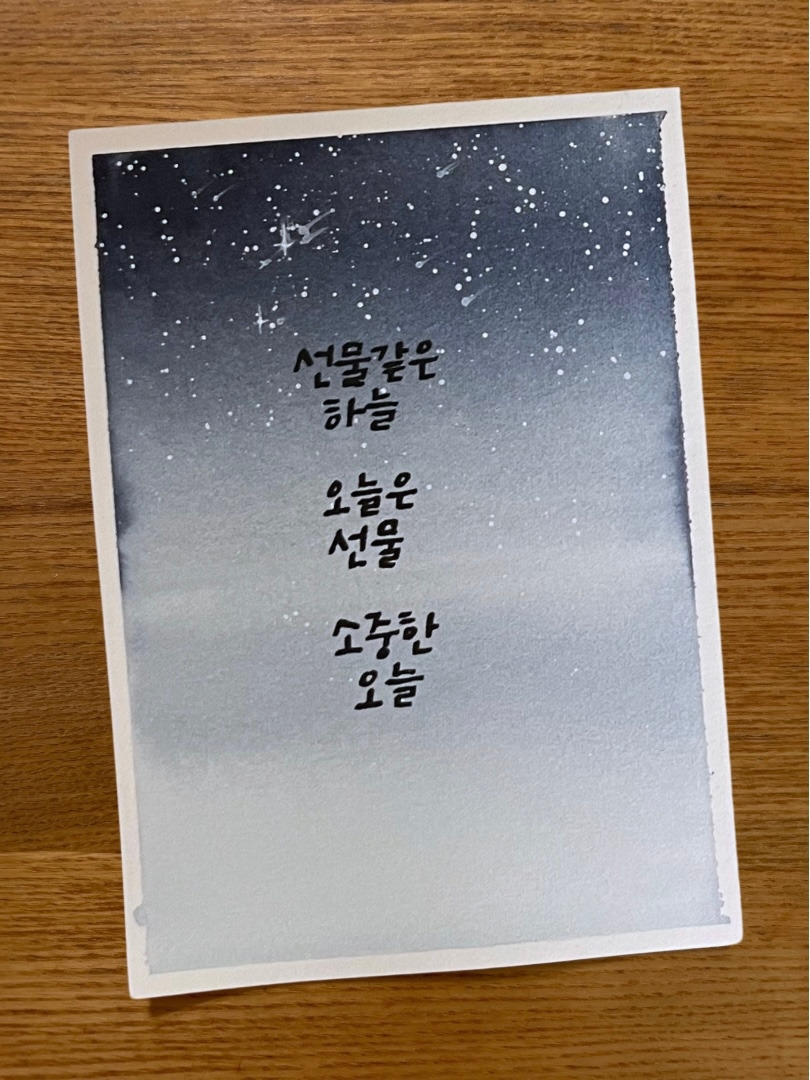 선물같은
하늘
오늘은
선물
소중한
오늘